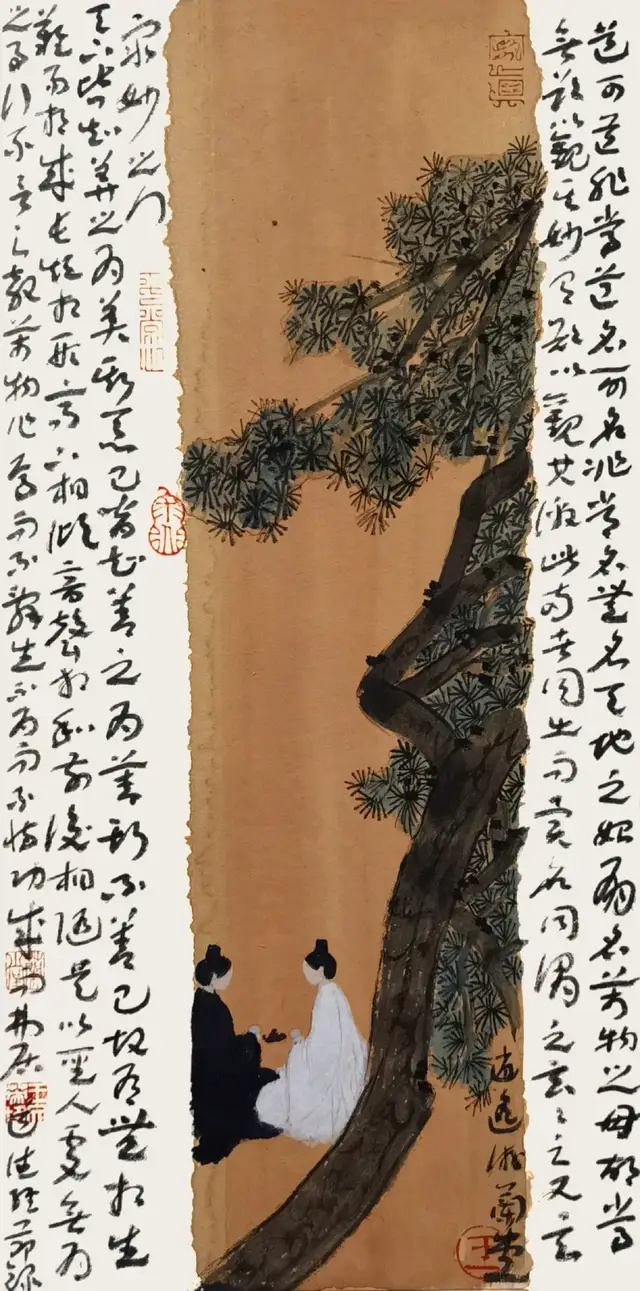 道可道非常道名可名非常名無名天地之始有名萬物之母故常
無欲以觀其妙有欲以觀其徼此兩者同出而異名同謂之玄玄之又玄
眾妙之門
天下皆知美之為美斯惡已皆知善之為善斯不善已故有無相生
難易相成長短相形高下相傾音聲相和前後相隨是以聖人處無為
之事行不言之教萬物作焉而不辭生不為而不恃功成而弗居
道德經節錄
逍遙